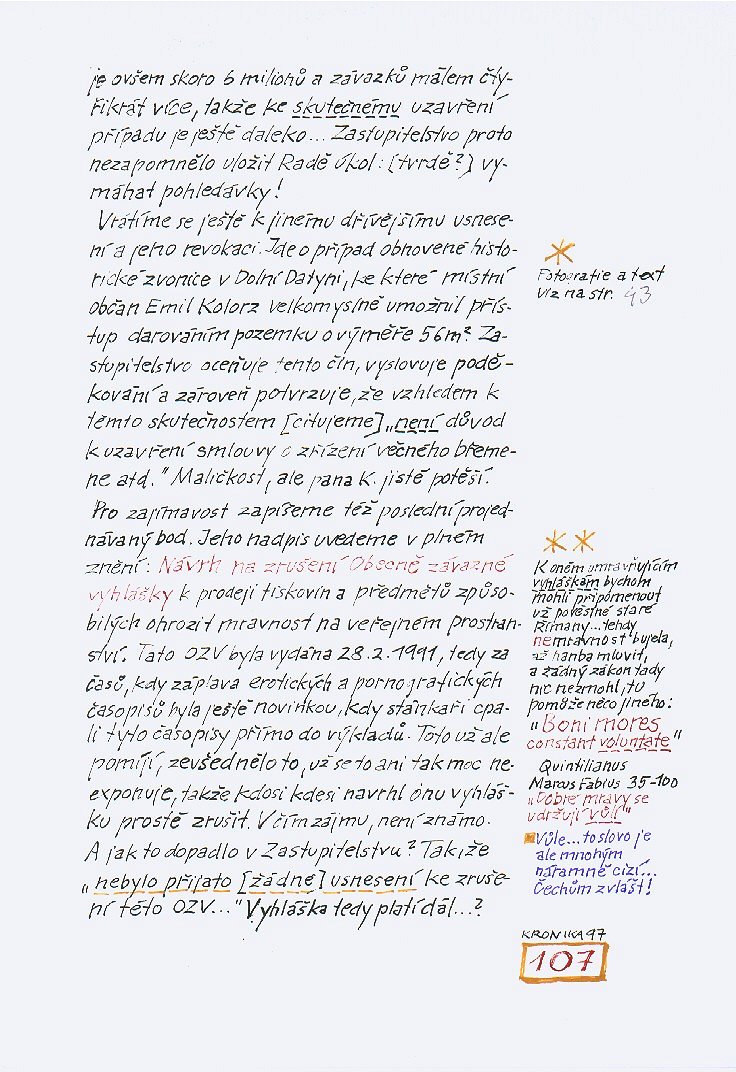 je ovšem skoro 6 milionů a závazků málem čty-
řikrát více, takže ke skutečnému uzavření
případu je ještě daleko... Zastupitelstvo proto
nezapomnělo uložit Radě úkol: [tvrdě?] vy-
máhat pohledávky!
Vrátíme se ještě k jinému dřívějšímu usnese-
ní a jeho revokaci. Jde o případ obnovené histo-
rické zvonice v Dolní Datyni, ke které místní
občan Emil Kolorz velkomyslně umožnil přís-
tup darováním pozemku o výměře 56m². Za-
stupitelstvo oceňuje tento čin, vyslovuje podě-
kování a zároveň potvrzuje, že vzhledem k
těmto skutečnostem [citujeme] „není důvod
k uzavření smlouvy o zřízení věčného břeme-
ne atd." Maličkost, ale pana K. jistě potěší.
Pro zajímavost zapíšeme též poslední projed-
návaný bod. Jeho nadpis uvedeme v plném
znění: Návrh na zrušení Obecně závazné
vyhlášky k prodeji tiskovin a předmětů způso-
bilých ohrozit mravnost na veřejném prostran-
ství. Tato OZV byla vydána 28.2.1991, tedy za
časů, kdy záplava erotických a pornografických
časopisů byla ještě novinkou, kdy stánkaři cpa-
li tyto časopisy přímo do výkladů. Toto už ale
pomíjí, zevšednělo to, už se to ani tak moc ne-
exponuje, takže kdosi kdesi navrhl onu vyhláš-
ku prostě zrušit. V čím zájmu, není známo.
A jak to dopadlo v Zastupitelstvu? Tak, že
„nebylo přijato [žádné] usnesení ke zruše-
ní této OZV..." Vyhláška tedy platí dál...?
Fotografie a text
viz na str. 43
K oněm umravňujícím
vyhláškám bychom
mohli připomenout
už pověstné staré
Římany... tehdy
nemravnost bujela,
až hanba mluvit,
a žádný zákon tady
nic nezmohl, tu
pomůže něco jiného:
„Boni mores
constant voluntate"
Quintilianus
Marcus Fabius 35-100
„Dobré mravy se
udržují vůlí"
Vůle... to slovo je
ale mnohým
náramně cizí...
Čechům zvlášť!
KRONIKA 97
107